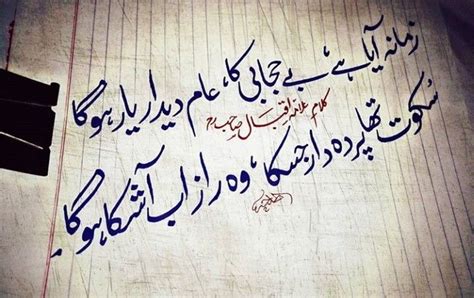 زمانہ آیا ہے، بے حجابی کا، عام دیدار یار ہوگا
کلام علامہ اقبال صاحب
سُکوت تھا پردہ دار جسکا، وہ راز اب آشکا ہوگا